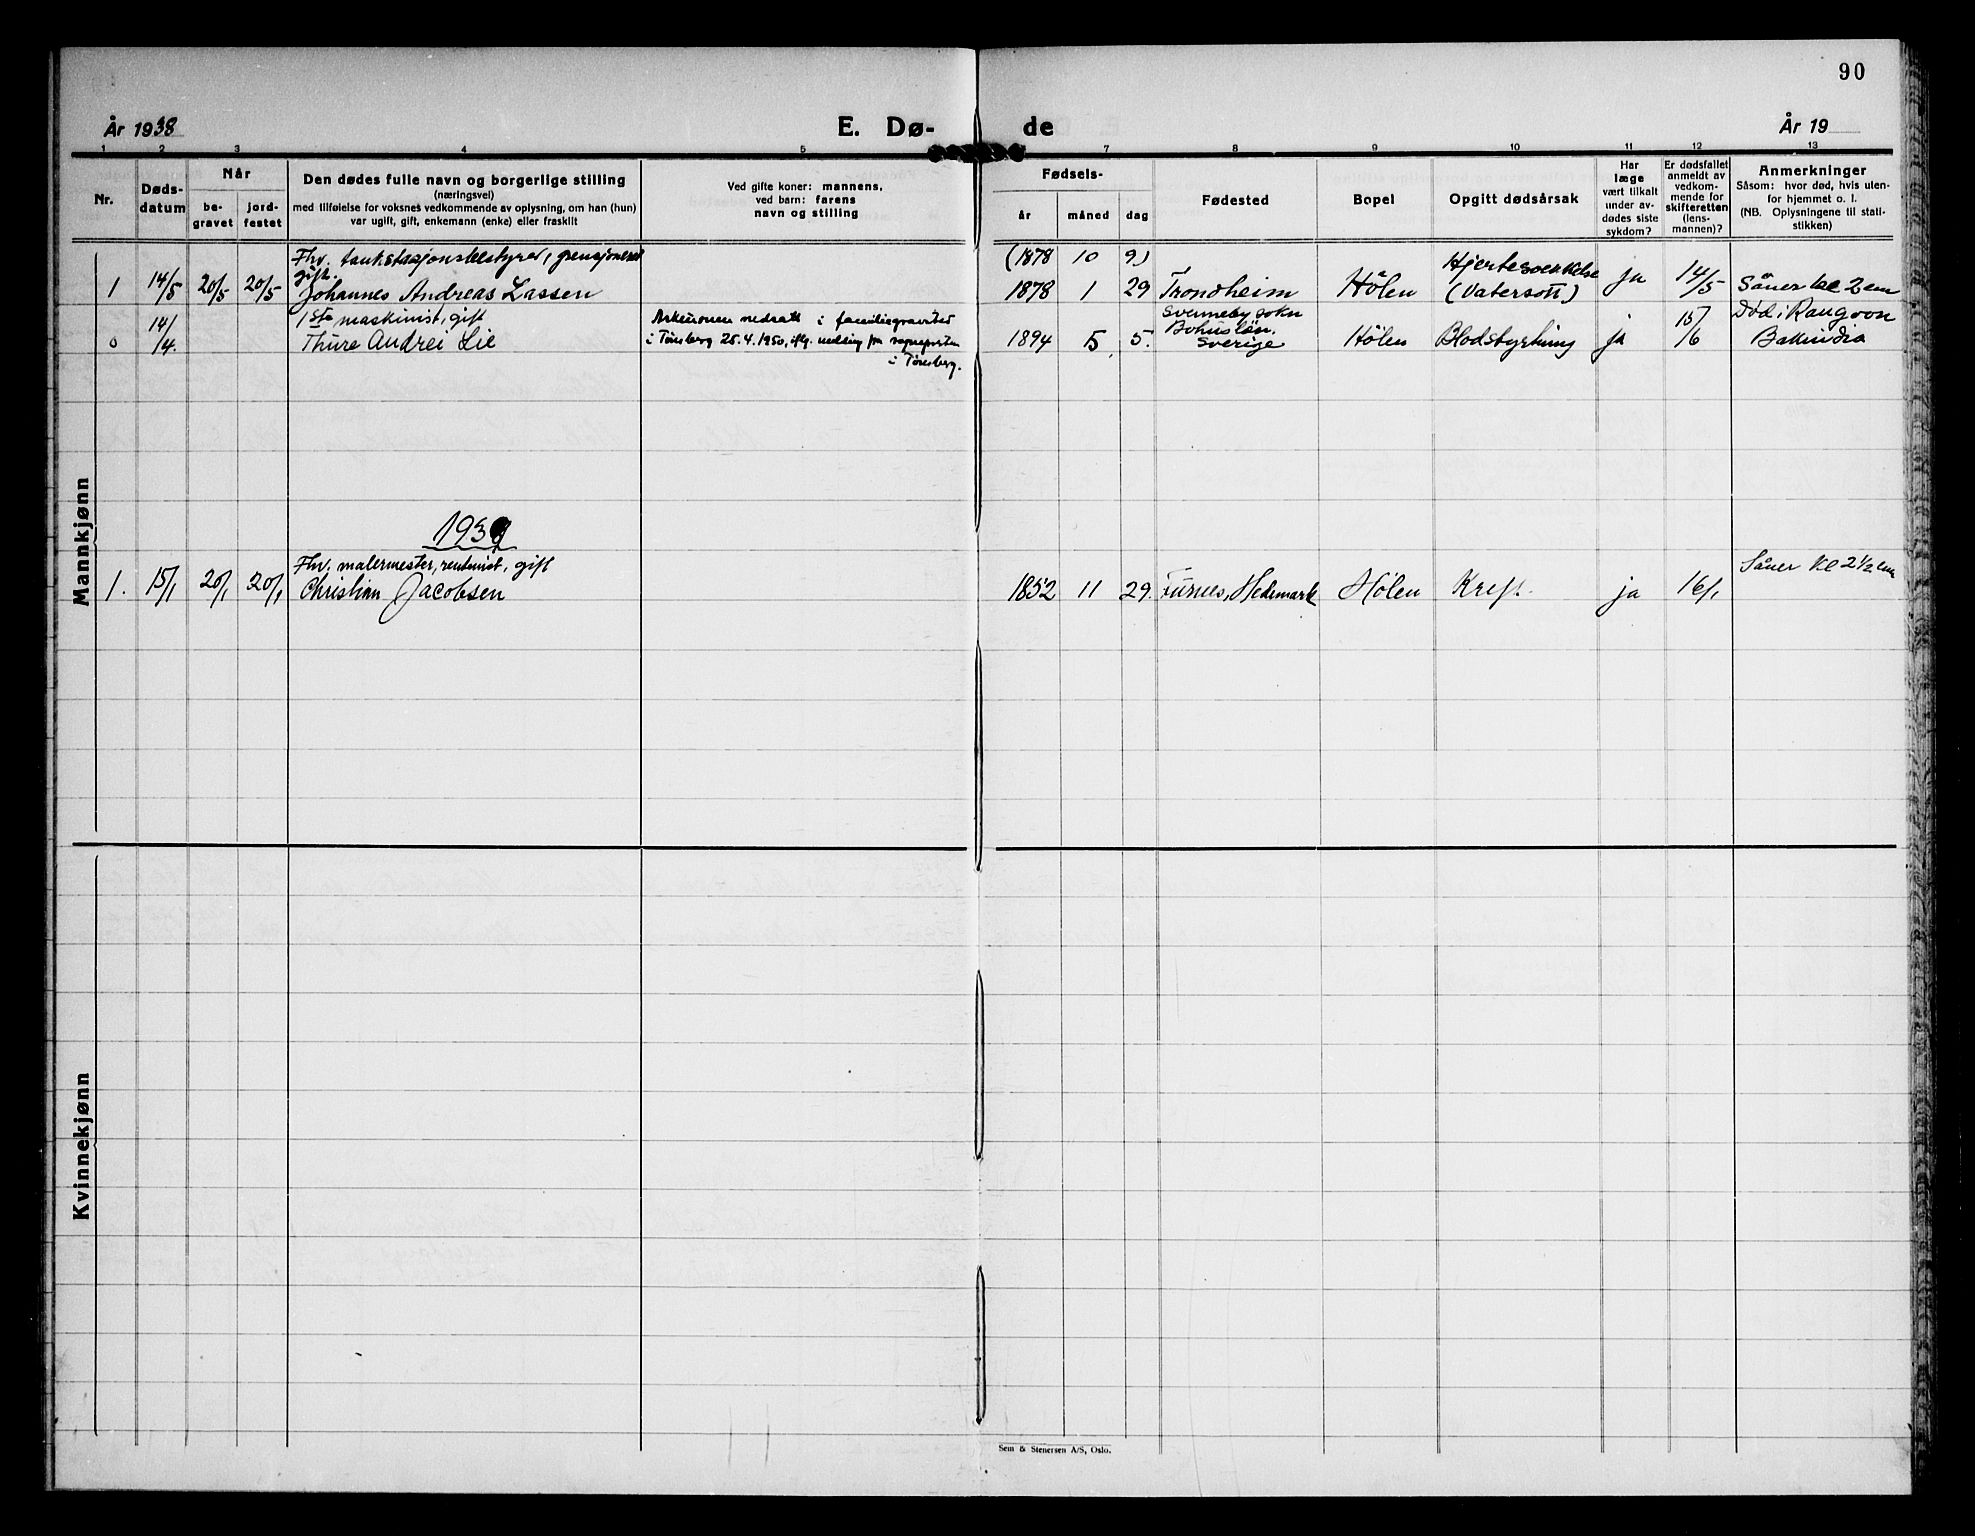 90
År 1938
E. Dø-
de
År 19
1 2 3 4 5 7 8 9 10 11 12 13
Nr.
Døds-
datum
Når
be-
gravet
jord-
festet
Den dødes fulle navn og borgerlige stilling
(næringsvei)
med tilføielse for voksnes vedkommende av oplysning, om han (hun)
var ugift, gift, enkemann (enke) eller fraskilt
Ved gifte koner: mannens,
ved barn: farens
navn og stilling
Fødsels-
år måned dag
Fødested
Bopel
Opgitt dødsårsak
Har
læge
vært tilkalt
under av-
dødes siste
sykdom?
Er dødsfallet
anmeldt av
vedkom-
mende for
skifteretten
(lens-
mannen)?
Anmerkninger
Såsom: hvor død, hvis uten-
for hjemmet o. l.
(NB. Oplysningene til stati-
stikken)
Mannkjønn
Fhv. tankstasjonsbestyrer, pensjonert
gift.
(1878 10 9)
1 14/5 20/5 20/5 Johannes Andreas Lassen
1878 1 29 Trondheim Hölen Hjertesvekkelse
(Vatersott) ja 14/5 Såner kl 2 em
14/4. 1ste maskinist, gift
0 Thure Andrei Lie
nedsatt i familiegravsted
i Tønsberg 25.4.1950, iflg. melding fra sognepresten
i Tønsberg.
1894 5 5. Svenneby sokn
Bohuslän.
Sverige Hölen Blodstyrtning ja 15/6 Död i Rangoon
1939
Fhv. malermester, rentenist, gift
1. 15/1 20/1 20/1 Christian Jacobsen
1852 11 29. Furnes, Hedemark Hölen Kreft. ja 16/1 Såner kl 2 1/2 em
Kvinnekjønn
Sem & Stenersen A/S, Oslo.